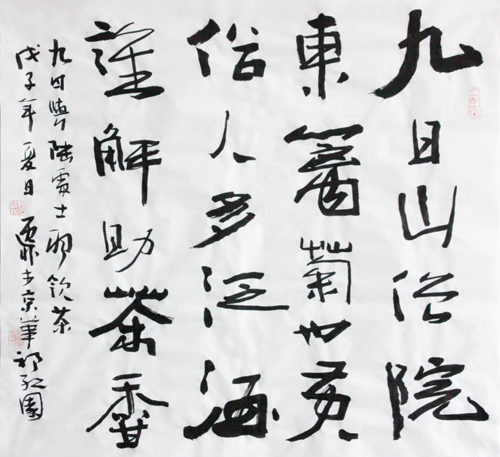 九日山僧院
東籬菊也黄
俗人多泛酒
誰解助茶香
九日與陸處士羽飲茶
戊子年夏日 京華